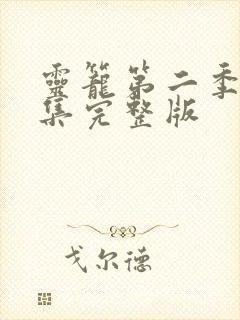 靈籠第二季
集完整版
戈尔德